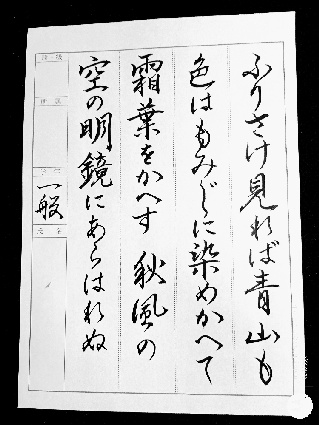 ふりさけ見れば青山も
色はもみぢに染めかへて
霜葉をかへす 秋風の
空の明鏡にあらはれぬ
一般